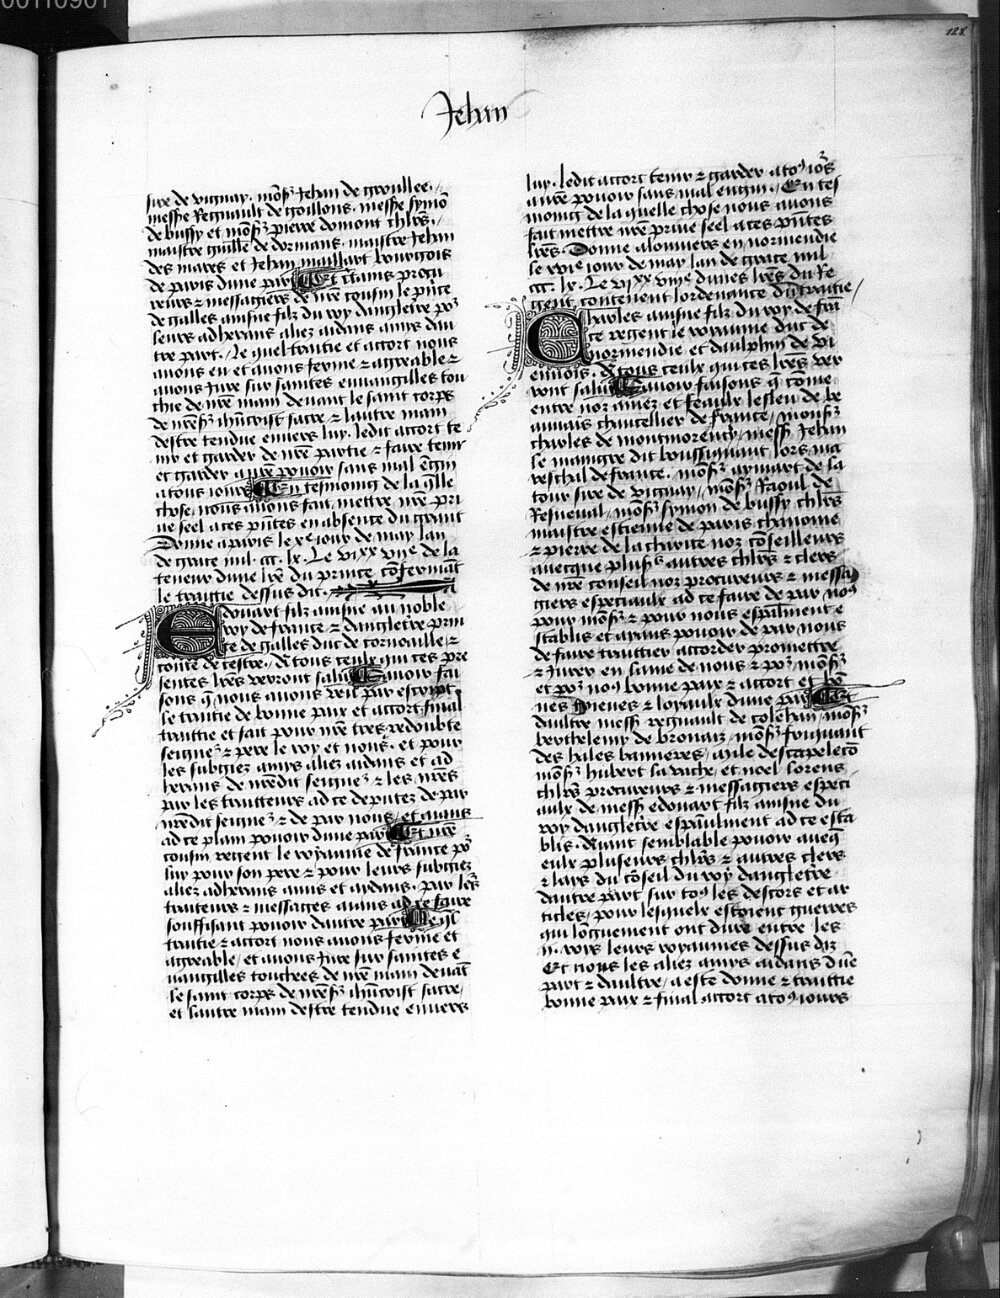 00110901
128
Jehan
sire de vignay. mons Jehan de groullee.
messe Regnault de goillons. messe symon
de bussy et mons pierre domont chlrs.
maistre guille de dormans. maistre Jehan
des mares et Jehan maillart bourgois
de paris dune part Et ctains procu
reurs & messagiers de nre cousin le pnce
de galles ainsne filz du roy dangletre por
leurs adherens aliez aidans amis dau
tre part. Le quel traitie et accort nous
auons eu et auons ferme & agreable &
auons Jure sur saintes euuangilles tou
chie de nre main deuant le saint corps
de nresr ihucrist sacre & lautre main
destre tendue enuers luy. ledit accort te
nir et garder de nre partie & faire tenir
et garder a nre pouoir sans mal engin
a tous iours En tesmoing de la qlle
chose. nous auons fait mettre nre pri
ue seel a ces pntes en absence du grant
Donne a paris le xe iour de may lan
de grace mil. ccc. lx. Le vixx viie de la
teneur dune lre du prince confermant
le traitie dessus dit.
Edouart filz ainsne au noble
roy de france & dangletre prin
ce de galles duc de cornoaille &
conte de cestre. A tous ceulx qui ces pre
sentes lres verront salut Sauoir fai
sons q nous auons veu par escript
le traitie de bonne paix et accort final
traittie et fait pour nre tres redoubte
seigner & pere le roy et nous. et pour
les subgiez amys aliez aidans et ad
herens de nredit seigner & les nres
par les traitteurs ad ce deputez de par
nredit seigner & de par nous. et aians
ad ce plain pouoir dune part Et nre
cousin regent le royaume de france por
luy pour son pere & pour leurs subgiez
aliez adherans amis et aidans. par les
traiteurs & messages aians ad ce faire
souffisant pouoir dautre part Le ql
traitie & accort nous auons ferme et
agreable. et auons Jure sur saintes e
uangilles touchees de nre main deuant
le saint corps de nresr ihucrist sacre.
et lautre main destre tendue enuers
luy. ledit accort tenir & garder a tos iors
a nre pouoir sans mal engin. En tes
moing de la quelle chose nous auons
fait mettre nre priue seel a ces pntes
lres. Donne a louuiers en normendie
le xvie iour de may lan de grace mil
ccc. lx. Le vixx viiie dunes lres du Re
gent contenent lordenance du traitie
Charles ainsne filz du roy de fran
ce regent le royaume duc de
normendie et daulphin de vi
ennois. A tous ceulx qui ces lres ver
ront salut Sauoir faisons q come
entre noz amez et feaulx lesleu de be
auuais chancellier de france. monsr
charles de montmorency. messe Jehan
le maingre dit boussiquaut lors ma
reschal de france. monsr aymart de la
tour sire de vignay. monsr Raoul de
Resneual. monsr symon de bussy chlrs
maistre estienne de paris chanoine
& pierre de la charite noz conseilleurs
auecque pluss autres chlrs & clers
de nre conseil noz procureurs & messa
giers especiaulx ad ce faire de par nos
pour monsr & pour nous espalment e
stablis et aians pouoir de par nous
de faire traittier accorder promettre
& Jurer en lame de nous & por monsr
et por nos bonne paix & accort et bo
nes trieues & loyaulx dune part Et
daultre messe regnault de cobehan. monsr
berthelemy de bronaiz. monsr fouquaut
des hales bannieres. mile descapelecon
monsr hubert la vache. et noel lorens
chlrs procureurs & messagiers especi
aulx de messe edouart filz ainsne du
roy dangletre espaulment ad ce esta
blis. Aiant semblable pouoir aueq
eulx plusieurs chlrs & autres clers
& lays du coseil du roy dangletre.
dautre part sur tos les descors et ar
ticles. pour lesquelx estoient guerres
qui longuement ont dure entre les
ii. roys leurs royaumes dessus diz
Et nous les aliez amys aidans dune
part & daultre. a este donne & traittie
bonne paix & final accort a tos iours